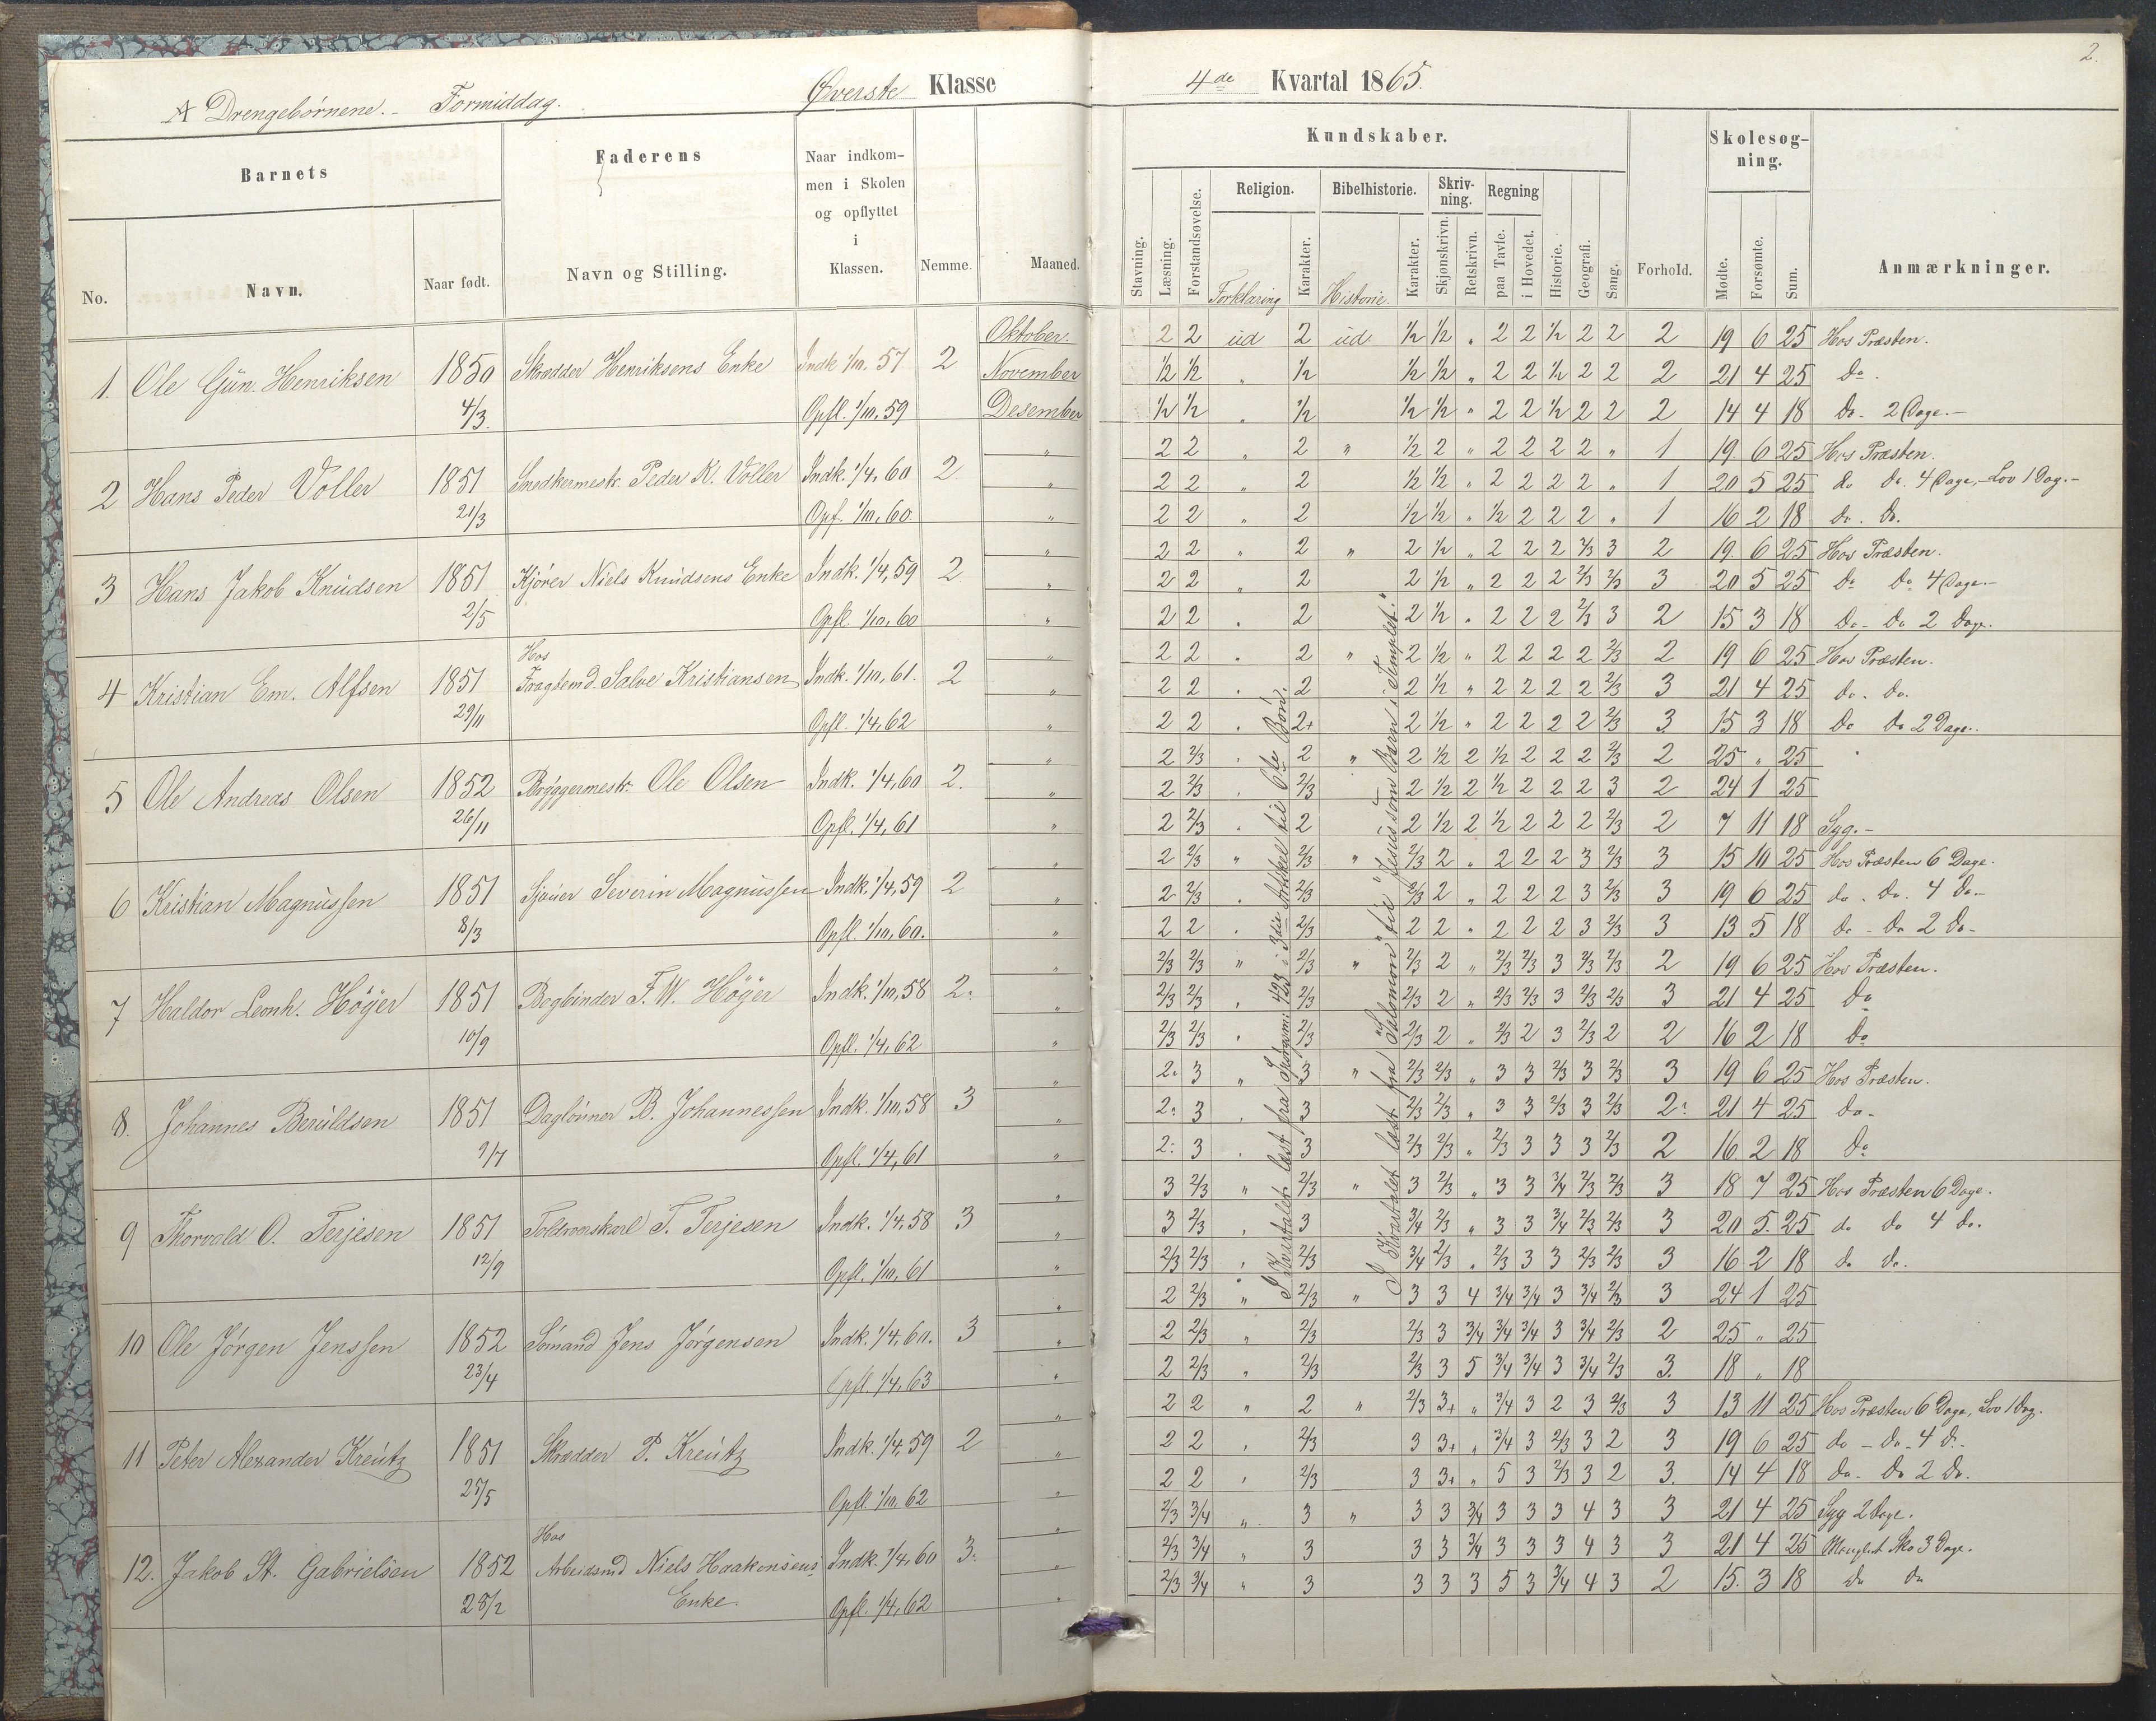 A Drengebörnene. - Formiddag. Øverste Klasse
4de Kvartal 1865.
2.
Barnets
Faderens
Naar indkom-
men i Skolen
og opflyttet
i
Klassen.
No. Navn. Naar født. Navn og Stilling. Nemme. Maaned.
Kundskaber.
Skolesøg-
ning.
Religion. Bibelhistorie. Skriv-
ning. Regning
Stavning. Læsning. Forstandsøvelse. Forklaring Karakter. Historie. Karakter. Skjønskrivn. Retskrivn. paa Tavle. i Hovedet. Historie. Geografi. Sang. Forhold. Mødte. Forsømte. Sum. Anmærkninger.
1. Ole Gün. Henriksen 1850 4/3. Skrædder Henriksens Enke Indk 1/10. 57 2 Oktober.
Opfl. 1/10. 59 November
Desember
2 2 ud 2 ud. 1/2 1/2 " 2 2 1/2 2 2 2 19 6 25 Hos Præsten.
1/2 1/2 " 1/2 1/2 1/2 " 2 2 1/2 2 2 2 21 4 25 do.
1/2 1/2 " 1/2 1/2 1/2 " 2 2 1/2 2 2 2 14 4 18 do. 2 Dage. -
2 Hans Peder Voller 1851 21/3 Snedkermestr. Peder K. Voller Indk. 1/4, 60 2 "
Opf. 1/10, 60. "
2 2 " 2 " 1/2 2 " 2 2 2 2 " 1 19 6 25 Hos Præsten.
2 2 " 2 1/2 1/2 " 2 2 2 2 " 1 20 5 25 do do. 4 Dage, - Lov 1 Dag. -
2 2 " 2 1/2 1/2 " 1/2 2 2 2 " 1 16 2 18 do. do.
3 Hans Jakob Knudsen 1851 2/5 Kjörer Niels Knudsens Enke Indk. 1/4, 59 2 "
Opfl. 1/10, 60 "
2 2 " 2 " 2 1/2 " 2 2 2 2/3 3 2 19 6 25 Hos Præsten.
2 2 " 2 2 1/2 " 2 2 2 2/3 2/3 3 20 5 25 do do 4 Dage. -
2 2 " 2 2 1/2 " 2 2 2 2/3 3 2 15 3 18 do - do 2 Dage.
4 Kristian Em. Alfsen 1851 29/11 Hos
Fragtemd. Salve Kristiansen Indk. 1/10, 61. 2 "
Opfl. 1/4, 62 "
2 2 " 2 " 2 1/2 " 2 2 2 2 2/3 2 19 6 25 Hos Præsten.
2 2 " 2 2 1/2 " 2 2 2 2 2/3 3 21 4 25 do. do.
2 2 " 2+ 2 1/2 " 2 2 2 2 2/3 3 15 3 18 do do 2 Dage.
5 Ole Andreas Olsen 1852 26/11 Bryggermestr. Ole Olsen Indk. 1/4, 60 2. "
Opfl. 1/4, 61 "
2 2/3 " 2 " 2 1/2 2 1/2 2 2 2 2/3 2 25 " 25
2 2/3 " 2/3 2 1/2 2 1/2 2 2 2 3 2 24 1 25
2 2/3 " 2 2 1/2 2 1/2 2 2 2 2/3 2 7 11 18 Syg. -
6 Kristian Magnussen 1851 8/3 Sjouer Severin Magnussen Indk. 1/4, 59 2 "
Opfl. 1/10, 60. "
2 2/3 " 2/3 " 2/3 2 " 2 2 2 3 2/3 3 15 10 25 Hos Præsten 6 Dage.
2 2/3 " 2/3 2/3 2 " 2 2 2 3 2/3 3 19 6 25 do. do. 4 do -
2 2 " 2/3 2 2 " 2 2 2 3 2/3 3 13 5 18 do - do 2 do -
7 Haldor Leonh. Höyer 1851 10/9 Bogbinder F. W. Höyer Indk. 1/10, 58 2. "
Opfl. 1/4, 62 "
2/3 2/3 " 2/3 " 2/3 2 " 2/3 2/3 3 2/3 2/3 2 19 6 25 Hos Præsten.
2/3 2/3 " 2/3 2/3 2 " 2/3 2/3 3 2/3 2/3 3 21 4 25 do
2/3 2/3 " 2/3 2/3 2 " 2/3 2 3 2/3 2 2 16 2 18 do
8. Johannes Beruldsen 1851 Daglönner B. Johannessen Indk. 1/10, 58 3 "
Opfl. 1/4, 61 "
2. 3 " 3 " 2/3 2/3 " 3 3 2/3 3 2/3 3 19 6 25 Hos Præsten.
2. 3 " 3 2/3 2/3 " 3 3 2/3 3 2/3 2. 21 4 25 do -
2. 3 " 3 2/3 2/3 " 2/3 3 3 3 2/3 2 16 2 18 do
9 Thorvald O. Terjesen 1851 12/9 T. Terjesen Indk. 1/4, 58 3 "
Opfl. 1/10, 61 "
3 2/3 " 2/3 " 3 2/3 " 3 3 3/4 2/3 2/3 3 18 7 25 Hos Præsten 6 Dage.
3 2/3 " 3 3/4 2/3 " 3 3 3/4 2/3 2/3 3 20 5. 25 do do 4 do.
2/3 2/3 " 2/3 3/4 2/3 " 2/3 3 3 2/3 2/3 3 16 2 18 do do.
10 Ole Jörgen Jenssen 1852 23/4 Sömand Jens Jörgensen Indk. 1/4, 60. 3 "
Opfl. 1/4, 63 "
2 2/3 " 2/3 " 3 3 4 3/4 3/4 3 3/4 2/3 3 24 1 25
2 2/3 " 2/3 2/3 3 3/4 3/4 3/4 3 3/4 2/3 2 25 " 25
2 2/3 " 2/3 2/3 3 5 3/4 3/4 3 3/4 2/3 3. 18 " 18
11 Peter Alexander Kreutz 1851 25/5 Skrædder P. Kreutz Indk. 1/4, 59 2 "
Opfl. 1/10, 62 "
2 2 " 2 " 2/3 3+ " 3/4 3 2 3 2/3 3 13 11 25 Hos Præsten 6 Dage, Lov 1 Dag.
2 2 " 2/3 3 3+ " 3/4 3 2/3 3 2 3 19 6 25 do - do - 4 do -
2 2 " 2/3 3 3+ " 5 3 2/3 3 2 3. 14 4 18 do. do 2 do.
12. Jakob St. Gabrielsen 1852 28/2 Hos
Arbeidsmd Niels Haakonsens Indk. 1/4, 60 3. "
Enke. Opfl. 1/4, 62 "
2/3 3/4 " 3 " 3 3 3/4 3 3 3 4 3 3 21 4 25 Syg 2 Dage.
2/3 3/4 " 3 3 3 3/4 3 3 3 4 3 3 21 4 25 Manglet Sko 3 Dage.
2/3 3/4 " 3 3 3 3 5 3 3/4 4 3 2 15. 3 18 do do
I Kvartalet læst fra Spörgsm: 423 i 3die Artikkel til 6te Bön.
I Kvartalet læst fra "Salomon" til "Jesus som Barn i Templet."